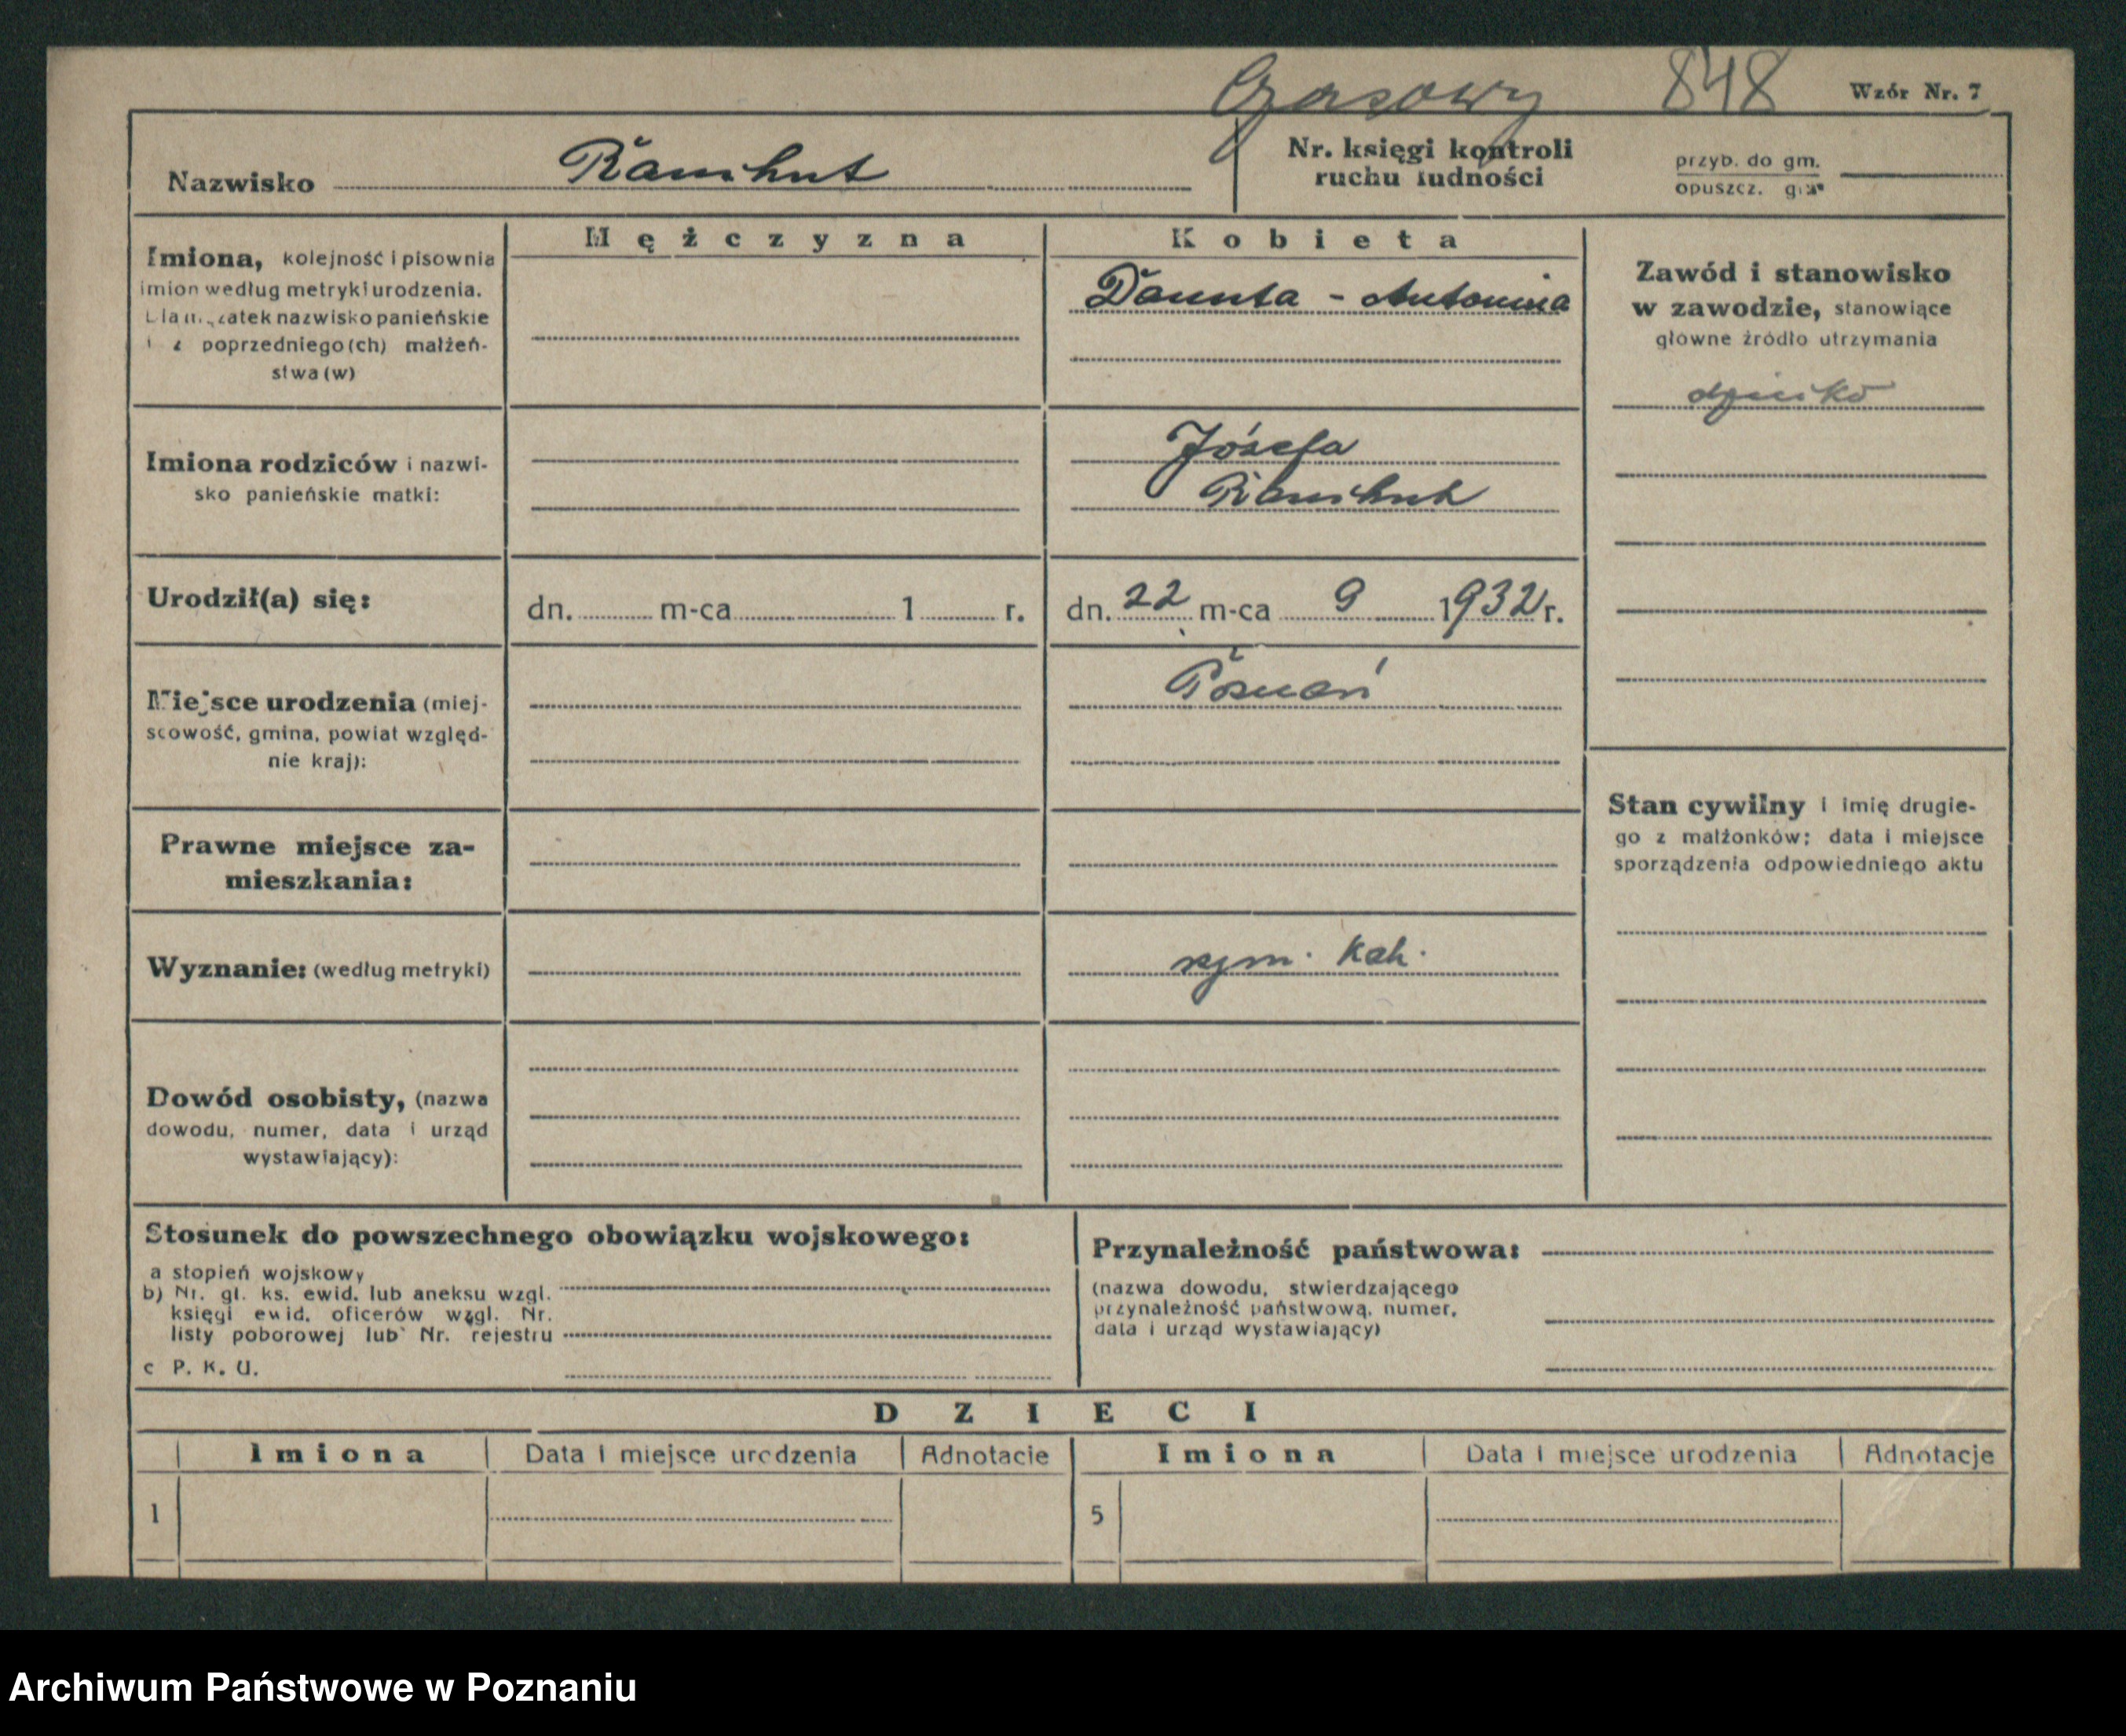 Czasowy 848 Wzór Nr. 7
Nazwisko Ranihut
Nr. księgi kontroli
ruchu ludności
przyb. do gm.
opuszcz. gm.
Mężczyzna Kobieta
Imiona, kolejność i pisownia
imion według metryki urodzenia.
Dla mężatek nazwisko panieńskie
i z poprzedniego(ch) małżeń-
stwa(w)
Danuta - Antonina
Zawód i stanowisko
w zawodzie, stanowiące
główne źródło utrzymania
Imiona rodziców i nazwi-
sko panieńskie matki:
Józefa
Ranihut
Urodził(a) się:
dn. m-ca 1 r.
dn. 22 m-ca 9 1932 r.
Miejsce urodzenia (miej-
scowość, gmina, powiat względ-
nie kraj):
Poznań
Prawne miejsce za-
mieszkania:
Stan cywilny i imię drugie-
go z małżonków; data i miejsce
sporządzenia odpowiedniego aktu
Wyznanie: (według metryki)
rzym. kat.
Dowód osobisty, (nazwa
dowodu, numer, data i urząd
wystawiający):
Stosunek do powszechnego obowiązku wojskowego:
a stopień wojskowy
b) Nr. gł. ks. ewid. lub aneksu wzgl.
księgi ewid. oficerów wzgl. Nr.
listy poborowej lub Nr. rejestru
c P. K. U.
Przynależność państwowa:
(nazwa dowodu, stwierdzającego
przynależność państwową, numer,
data i urząd wystawiający)
DZIECI
Imiona Data i miejsce urodzenia Adnotacje Imiona Data i miejsce urodzenia Adnotacje
1 5
Archiwum Państwowe w Poznaniu